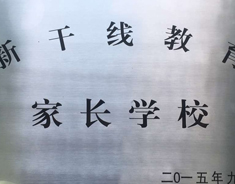 新干线教育
家长学校
二〇一五年九